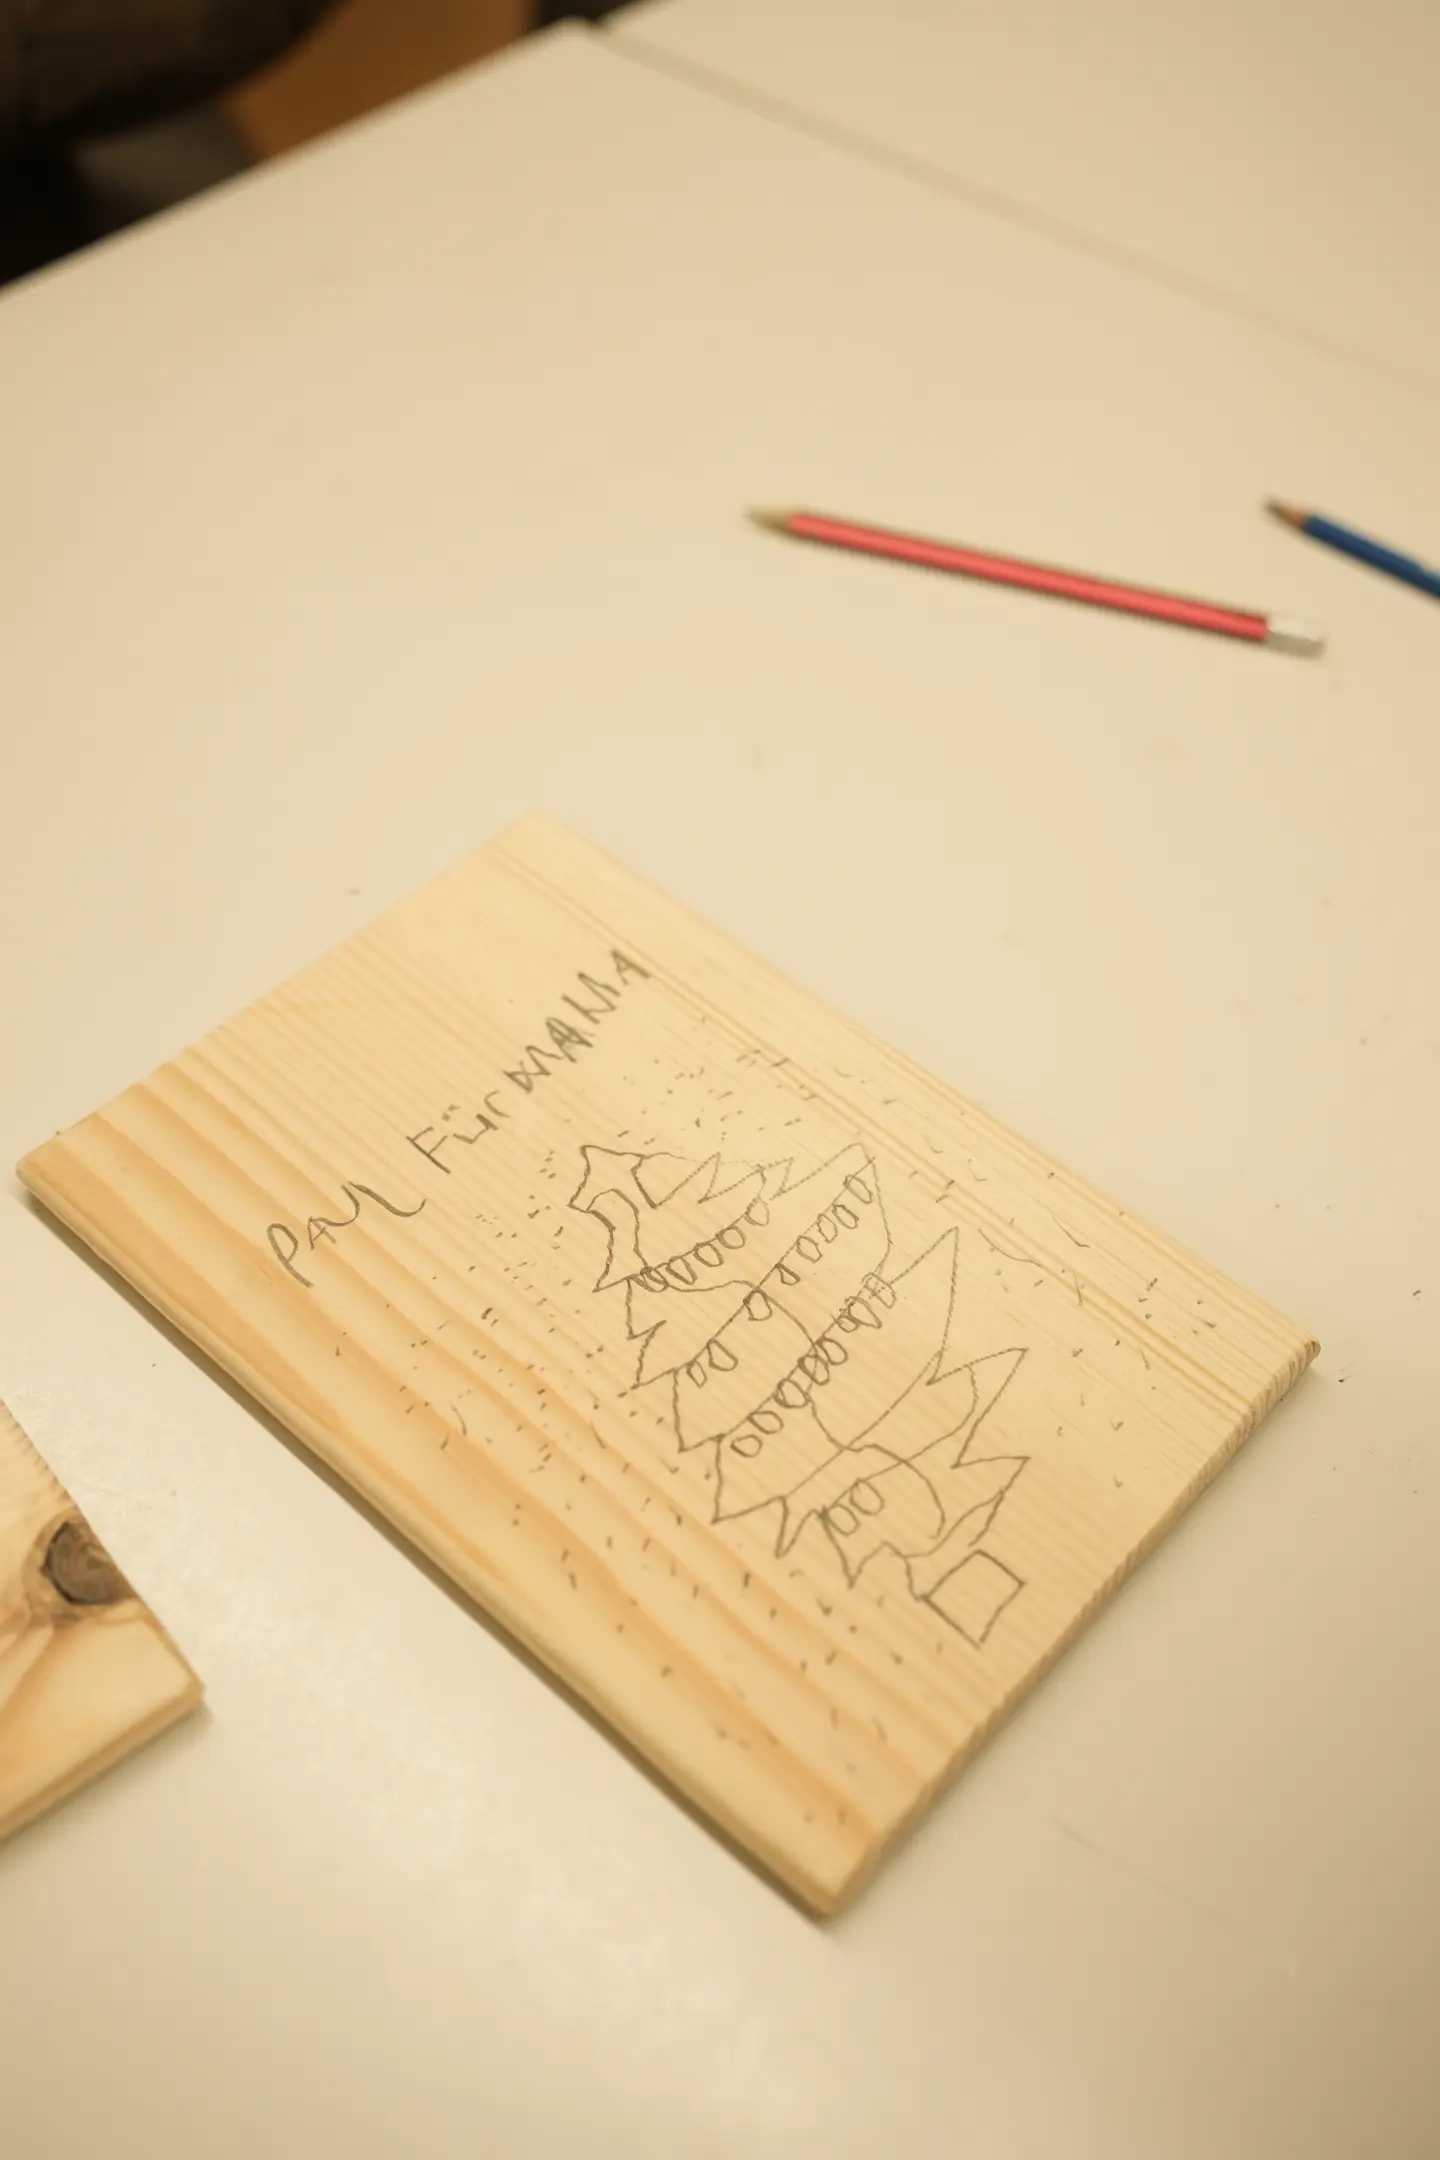 PAUL FÜr MAMA